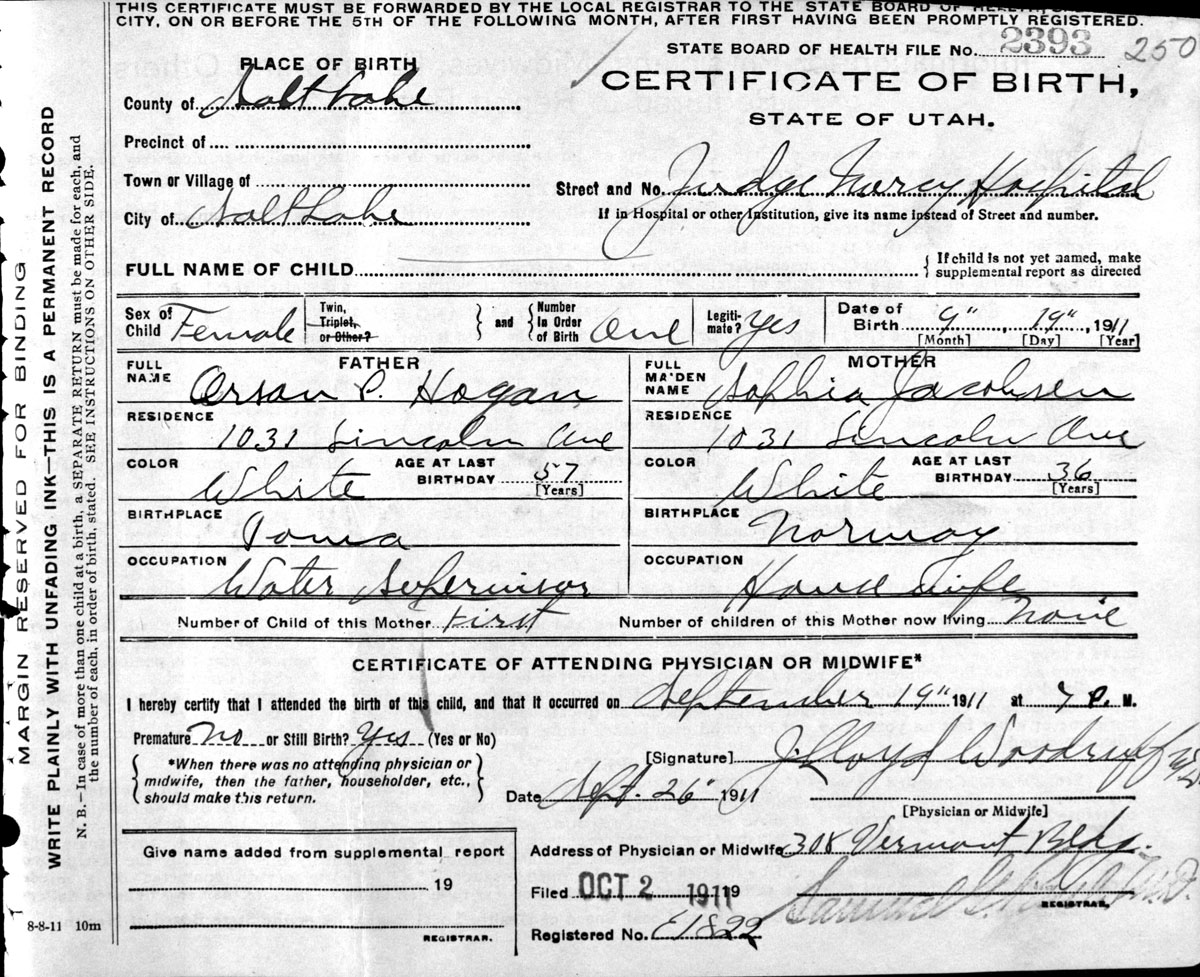 THIS CERTIFICATE MUST BE FORWARDED BY THE LOCAL REGISTRAR TO THE STATE BOARD OF HEALTH,
CITY, ON OR BEFORE THE 5TH OF THE FOLLOWING MONTH, AFTER FIRST HAVING BEEN PROMPTLY REGISTERED.
STATE BOARD OF HEALTH FILE No. 2393 250
PLACE OF BIRTH
CERTIFICATE OF BIRTH,
STATE OF UTAH.
County of Salt Lake
Precinct of
Town or Village of
Street and No. Judge Mercy Hospital
City of Salt Lake
If in Hospital or other Institution, give its name instead of Street and number.
FULL NAME OF CHILD
If child is not yet named, make
supplemental report as directed
Sex of Child Female Twin, Triplet, or Other? and Number In Order of Birth One Legiti-mate? Yes Date of Birth 9", 19", 1911
[Month] [Day] [Year]
FATHER MOTHER
FULL NAME Orson P. Hogan FULL MAIDEN NAME Sophia Jacobsen
RESIDENCE 1031 Lincoln Ave RESIDENCE 1031 Lincoln Ave
COLOR White AGE AT LAST BIRTHDAY 57 [Years] COLOR White AGE AT LAST BIRTHDAY 36 [Years]
BIRTHPLACE Iowa BIRTHPLACE Norway
OCCUPATION Water Supervisor OCCUPATION House wife
Number of Child of this Mother First Number of children of this Mother now living None
CERTIFICATE OF ATTENDING PHYSICIAN OR MIDWIFE*
I hereby certify that I attended the birth of this child, and that it occurred on September 19" 1911 at 7 P. M.
Premature No or Still Birth? Yes (Yes or No)
*When there was no attending physician or
midwife, then the father, householder, etc.,
should make this return.
[Signature] J. Lloyd Woodruff
Date Sept. 26" 1911
[Physician or Midwife]
Give name added from supplemental report
19
REGISTRAR.
Address of Physician or Midwife 308 Vermont Bldg.
Filed OCT 2 1911 19
REGISTRAR.
Registered No. E1822
8-8-11 10m
MARGIN RESERVED FOR BINDING
WRITE PLAINLY WITH UNFADING INK—THIS IS A PERMANENT RECORD
N. B.—In case of more than one child at a birth, a SEPARATE RETURN must be made for each, and
the number of each, in order of birth, stated. SEE INSTRUCTIONS ON OTHER SIDE.